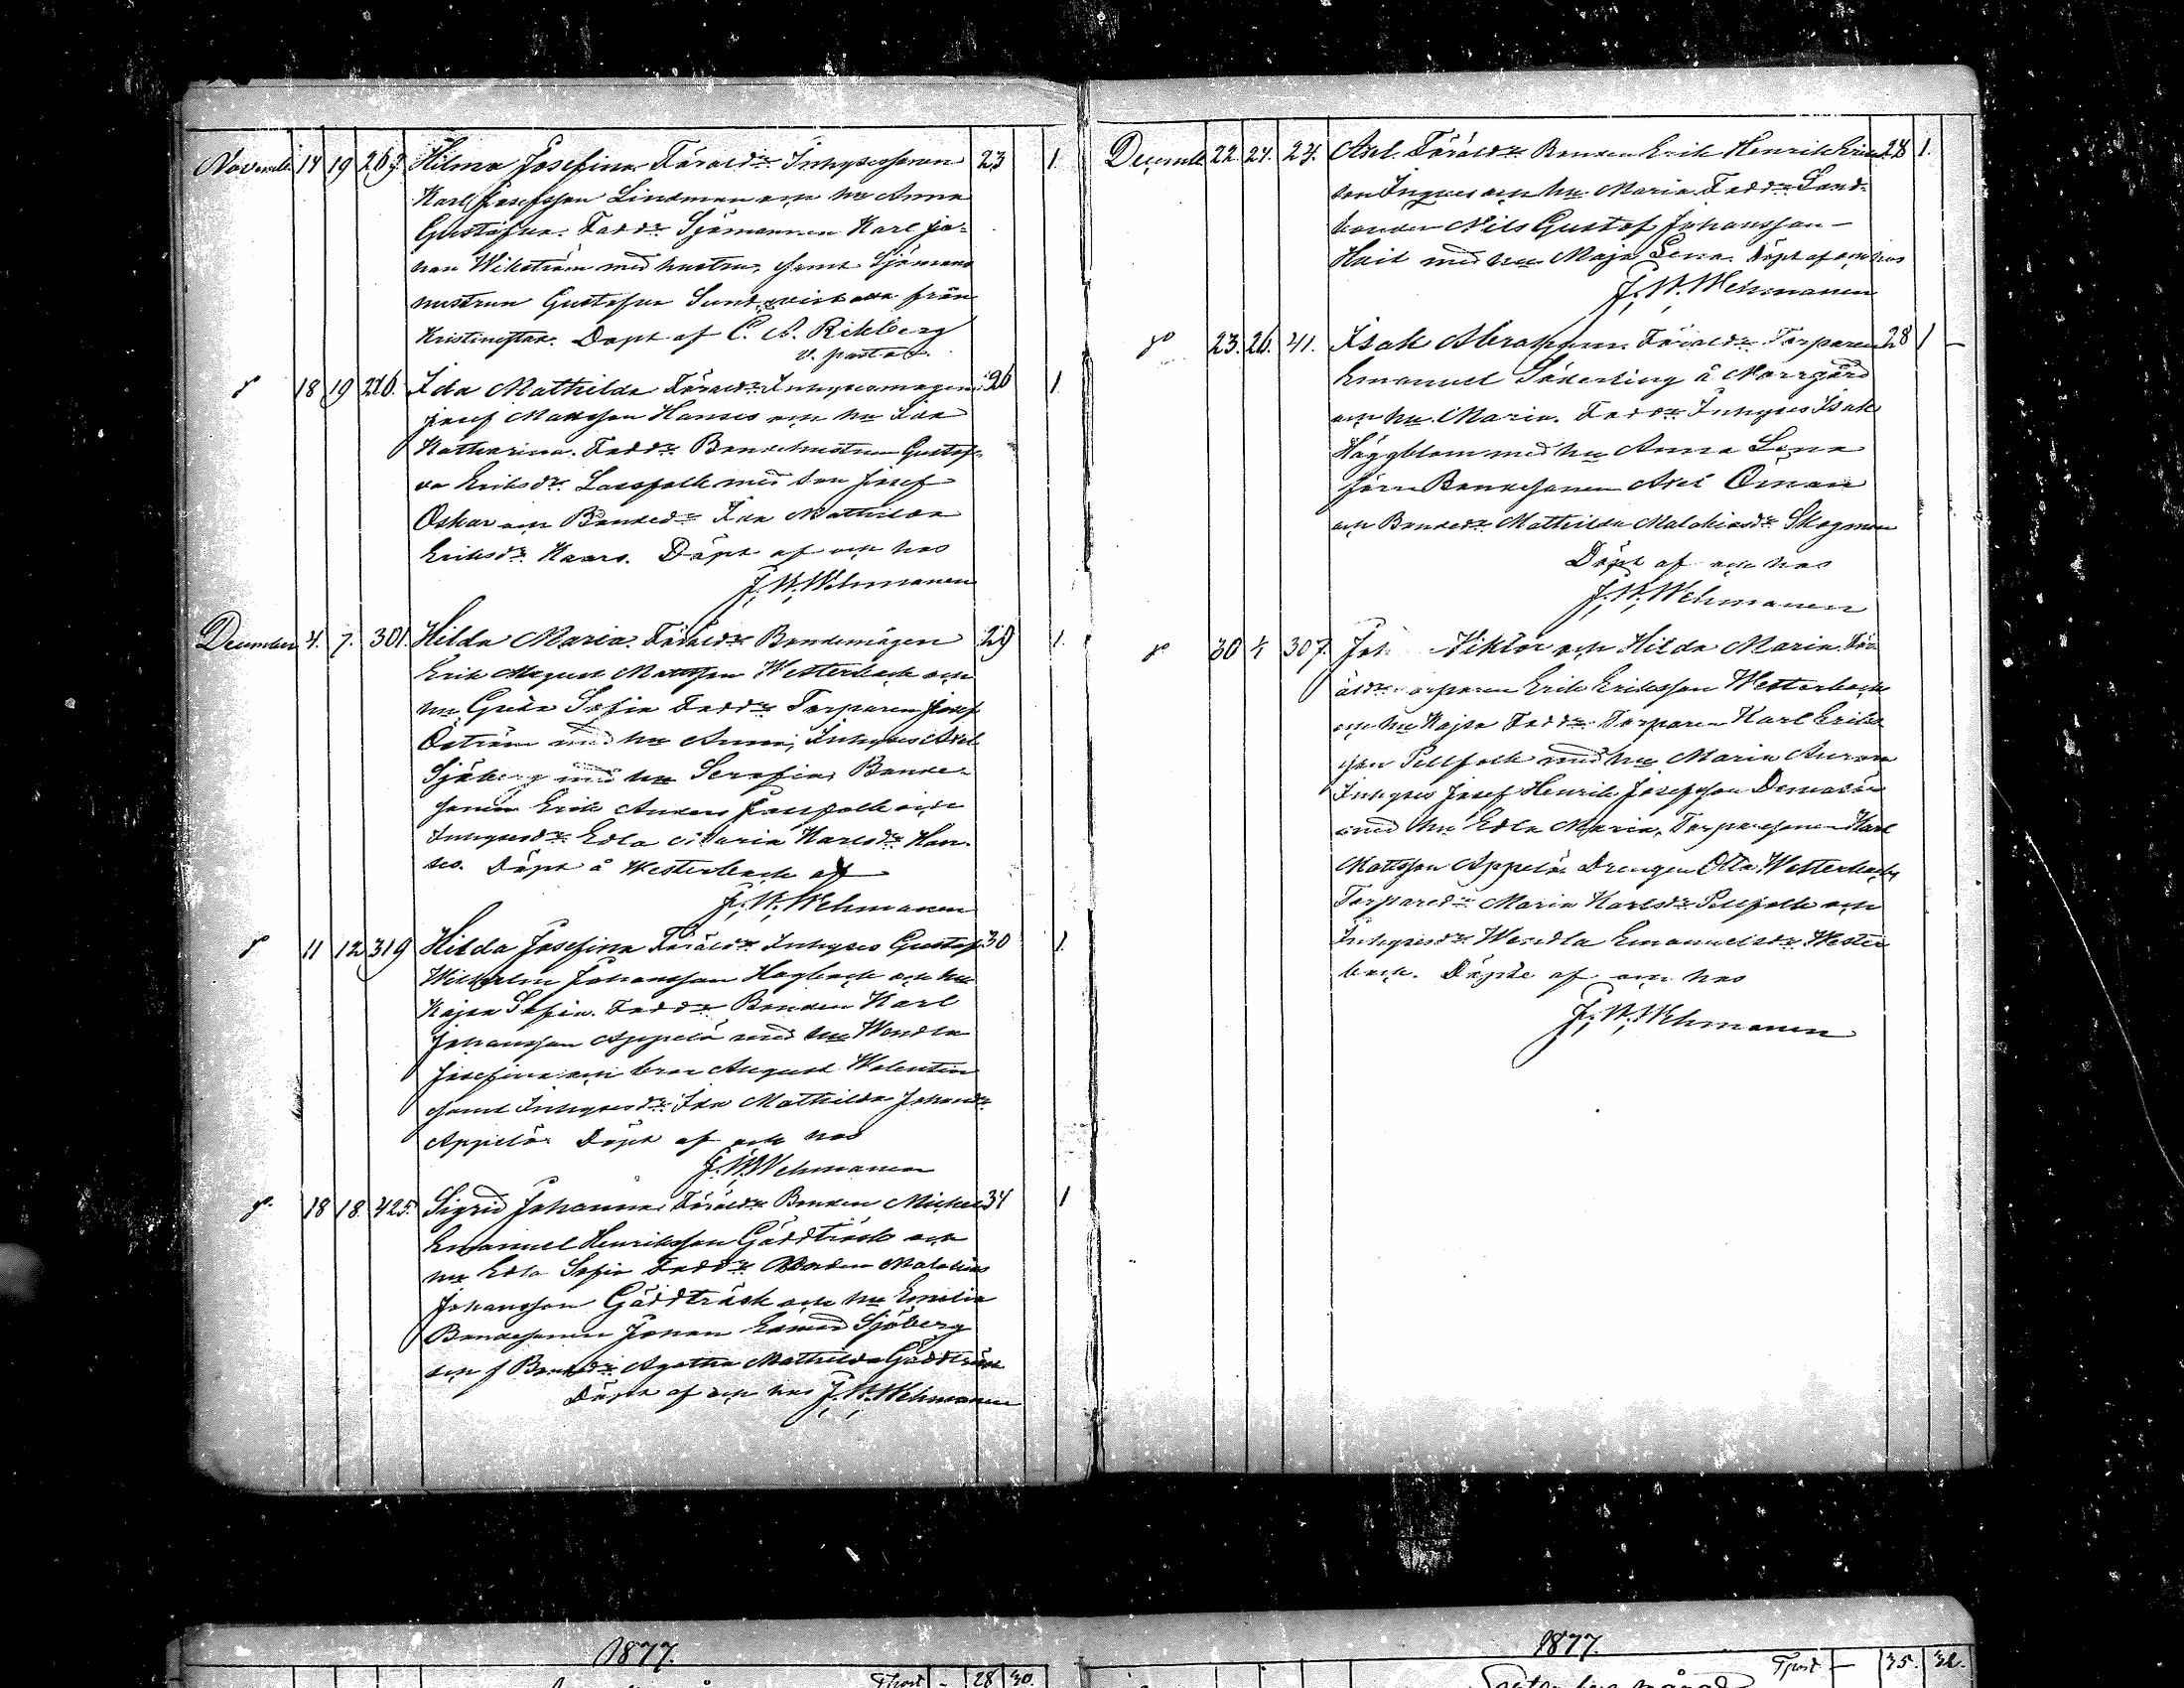 November 14 19 263. Hilma Josefina. Föräldr Inhysessonen 23 1
Karl Josefsson Lindman och hu Anna
Gustafva. Faddr Sjömannen Karl Jo-
han Wikström med hustru, samt Sjömans
hustrun Gustafva Sundqvist från
Kristinestad. Döpt af C. A. Rikberg
v. pastor.
do 18 19 226. Ida Mathilda Föräldr Inhysesmågen 26 1
Josef Mattsson Hanses och hu Ida
Katharina. Faddr Bondehustrun Gustaf-
va Eriksdr Lassfolk med son Josef
Oskar och Bondedr Ida Mathilda
Eriksdr Kaars. Döpt af och hos
J. W. Wehmanen
December 4. 7. 301. Hilda Maria. Föräldr Bondemågen 29 1.
Erik August Mattsson Westerback och
hu Greta Sofia Faddr Torparen Josef
Öström med hu Anna, Inhyses Axel
Sjöberg med hu Serafia, Bonde-
sonen Erik Anders Lassfolk och
Inhysesdr Edla Maria Karlsdr Han-
ses. Döpt å Westerback af
J. W. Wehmanen
do 11 12 319 Hilda Josefina Föräldr Inhyses Gustaf 30 1.
Wilhelm Johansson Hagback och hu
Kajsa Sofia. Faddr Bonden Karl
Johansson Appelö med hu Wendla
Josefina och bror August Walentin
samt Inhysesdr Ida Mathilda Johansdr
Appelö. Döpt af och hos
J. W. Wehmanen
do 18 18. 425. Sigrid Johanna. Föräldr Bonden Mickel 34 1
Emanuel Henriksson Gäddträsk och
hu Edla Sofia Faddr Bonden Malakias
Johansson Gäddträsk och hu Emelia
Bondesonen Johan Edvard Sjöberg
och Bondedr Agatha Mathilda Gäddträsk
Döpt af och hos J. W. Wehmanen
December 22. 24. 24. Axel. Föräldr Bonden Erik Henrik Eriks- 28 1.
son Ingves och hu Maria Faddr Land-
bonden Nils Gustaf Johansson
med hu Maja Lena. Döpt af och hos
J. W. Wehmanen
do 23. 26. 41. Isak Abraham. Föräldr Torparen 28 1 –
Emanuel Söderling å Norrgård
och hu Maria. Faddr Inhyses Isak
Häggblom med hu Anna Lena
Bondesonen Axel Öman
och Bondedr Mathilda Malakiasdr Skogman
Döpt af och hos
J. W. Wehmanen
do 30 1/1 307. Joh Viktor och Hilda Maria. För
äldr orparen Erik Eriksson Westerback
och hu Kajsa Faddr Torparen Karl Eriks
son Pellfolk med hu Maria
Inhyses Josef Henrik Josefsson
med hu Edla Maria, Torparesonen Karl
Mattsson Appelö. Drengen Otto Westerback
Torparedr Maria Karlsdr Pellfolk och
Inhysesdr Wendla Emanuelsdr Wester
back. Döpte af och hos
J. W. Wehmanen
1877. 1877.
Tsport – 28 30. Tsport – 35. 32.
September månad